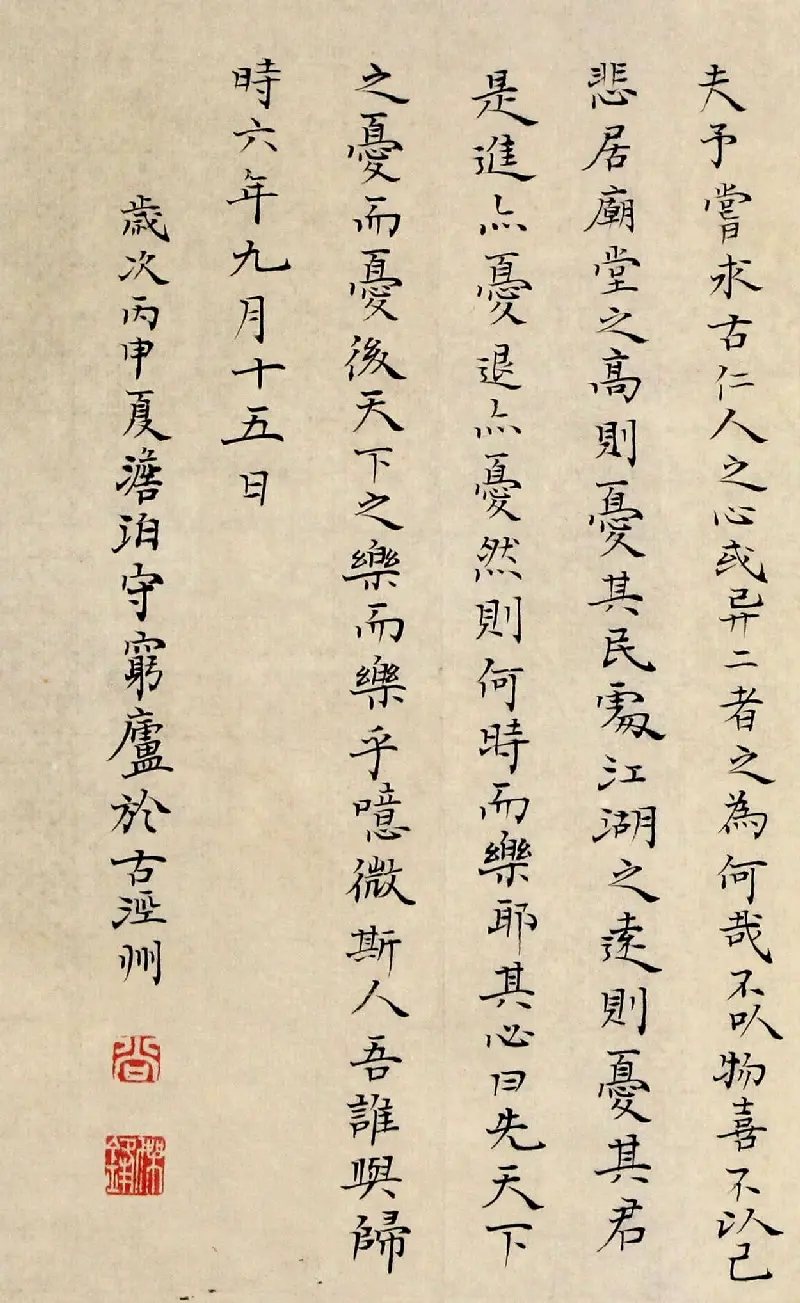 夫予嘗求古仁人之心或異二者之為何哉不以物喜不以己
悲居廟堂之高則憂其民處江湖之遠則憂其君
是進亦憂退亦憂然則何時而樂耶其必曰先天下
之憂而憂後天下之樂而樂乎噫微斯人吾誰與歸
時六年九月十五日
歲次丙申夏澹泊守窮廬於古涇州